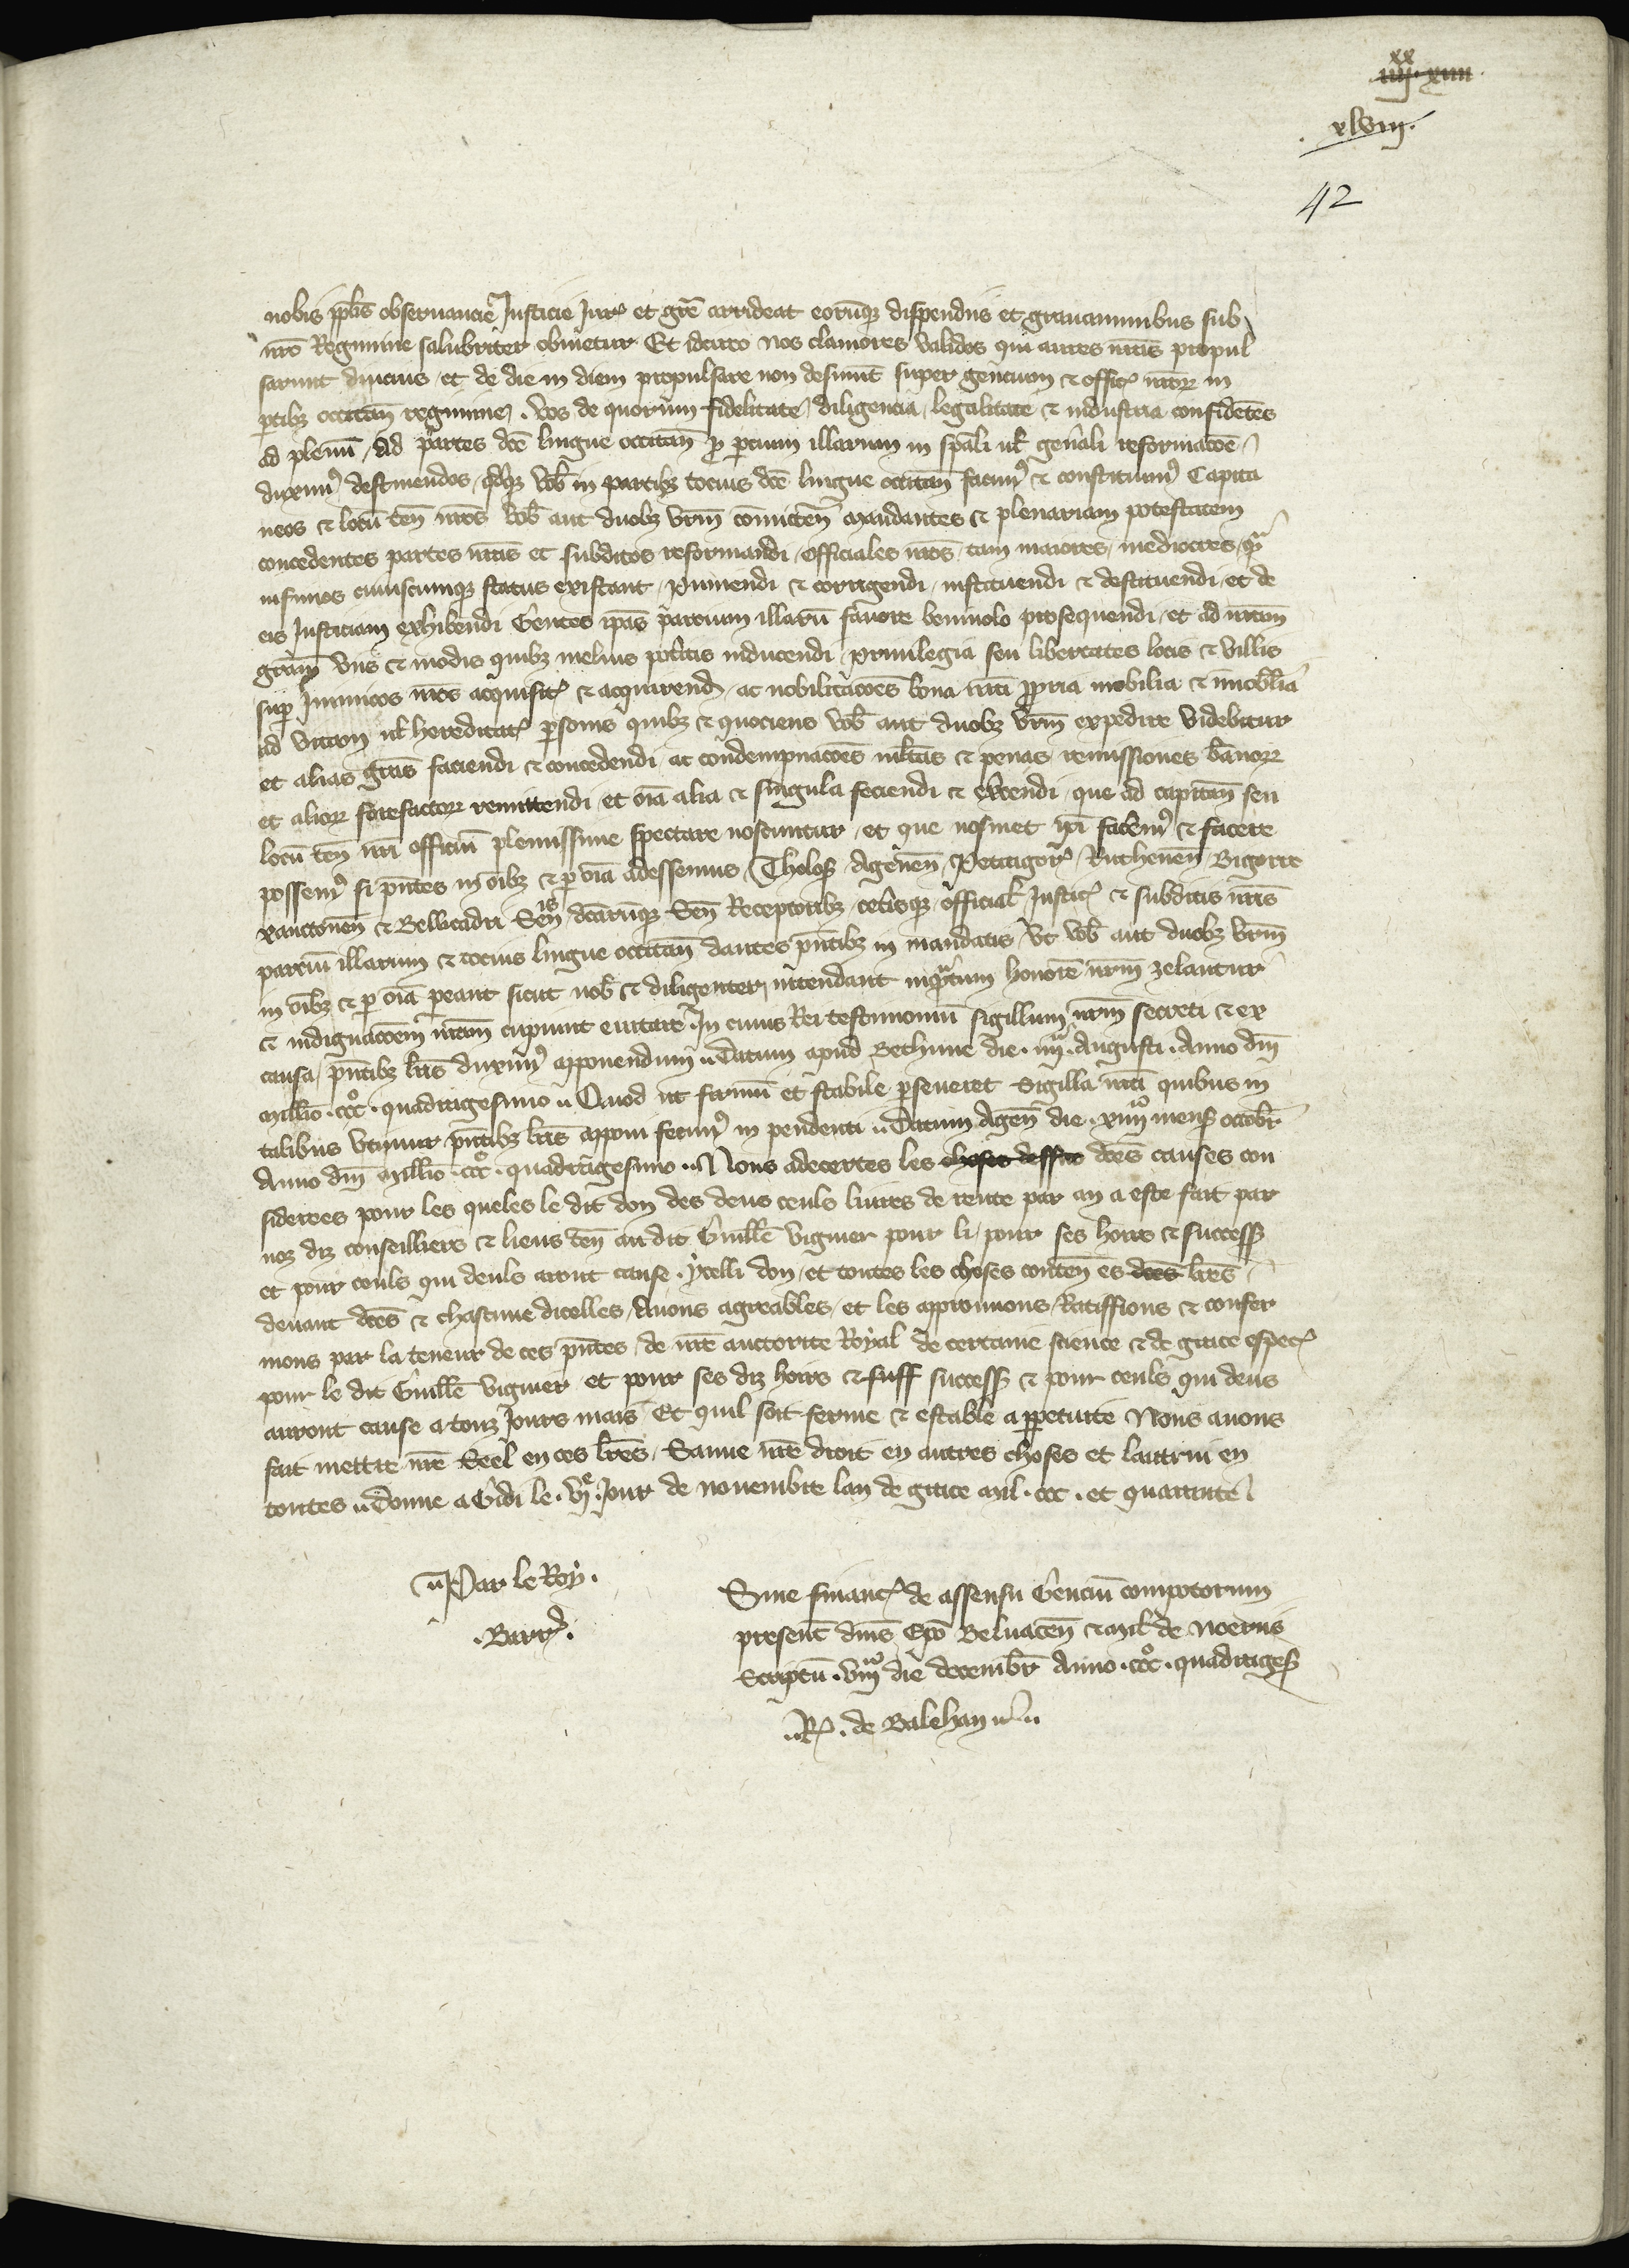 xx
iiii. xiiii
xlviii.
42
nobis pplis observancia Justicie Jur et gre arrideat eorumq dispendiis et gravaminibus sub
nro Regimine salubriter obvietur Et idcirco nos clamores validos qui aures nras propul
sarunt diucius et de die in diem propulsare non desinunt super gencium et offic nror in
ptibz occitan regimine. Vos de quorum fidelitate diligencia legalitate et industria confidetes
ad plenu Ad partes dce lingue occitan p parcium illarum in spali ul generali reformacoe
duxim destinendos qdqz vob in partibz tocius dce lingue occitan facim et constituim Capita
neos et locu ten nros vob aut duobz vrm comitten mandantes et plenariam potestatem
concedentes partes nras et subditos reformandi officiales nros tam maiores mediocres qm
infimos cuiuscumqz status existant puniendi et corrigendi instituendi et destituendi et de
eis Justiciam exhibendi Gentes ipas parcium illaru favore benivolo prosequendi et ad nram
gram viis et modis quibz melius poteritis inducendi privilegia seu libertates locis et villis
sup Inimicos nros acquisit et acquirend ac nobilitacoes bona nra ppria mobilia et imobilia
ad vitam ul hereditat psonis quibz et quociens vob aut duobz vrm expedire videbitur
et alias gras faciendi et concedendi ac condempnacoes mltas et penas remissiones banor
et alior forefactor remittendi et oia alia et singula faciendi et excendi que ad capitan seu
locu ten nri officiu plenissime spectare noscuntur et que nosmet ipi facem et facere
possem si pntes in oibz et p oia adessemus Tholos Agenen Petragor Ruthenen Bigorre
xanctonen et Bellicadri Sen dcaruqz Sen Receptoribz ceterisqz official Justic et subditis nris
parciu illarum et tocius lingue occitan dantes pntibz in mandatis Ut vob aut duobz vrm
in oibz et p oia pareant sicut nob et diligenter intendant inqntum honore nrm zelantur
et indignacoem nram cupiunt evitare In cuius Rei testimoniu sigillum nrm secreti et ex
causa pntibz lris duxim apponendum Datum apud Bethune die iiii Augusti Anno dni
millio ccc quadragesimo Quod ut firmu et stabile perseveret Sigilla nra quibus in
talibus utimur pntibz lris apponi fecim in pendenti Datum Agen die xiiii mens octobr
Anno dni millio ccc quadragesimo Nous adecertes les choses dessus dces causes con
siderees pour les queles le dit don des deus cens livres de rente par an a este fait par
noz diz conseilliers et lieus ten au dit Guille Viguier pour li pour ses hoirs et success
et pour ceuls qui deuls aront cause. ycelli don et toutes les choses conten es dces lres
devant dces et chascune dicelles Avons agreables et les approuvons Ratiffions et confer
mons par la teneur de ces pntes de nre auctorite Royal de certaine science et de grace espec
pour le dit Guille Viguier et pour ses diz hoirs et suff success et pour ceuls qui deus
auront cause a touz Jours mais Et quil soit ferme et estable a ppetuite Nous avons
fait mettre nre Seel en ces lres Sauve nre droit en autres choses et lautrui en
toutes Donne a Gidi le vj Jour de novembre lan de grace mil ccc et quarante
Par le Roy.
Barr.
Sine financ de assensu Genciu compotorum
present dnis Epo Belvacen et mil de Noeriis
Scriptu viii die decembr Anno ccc quadrages
R. de Balehan